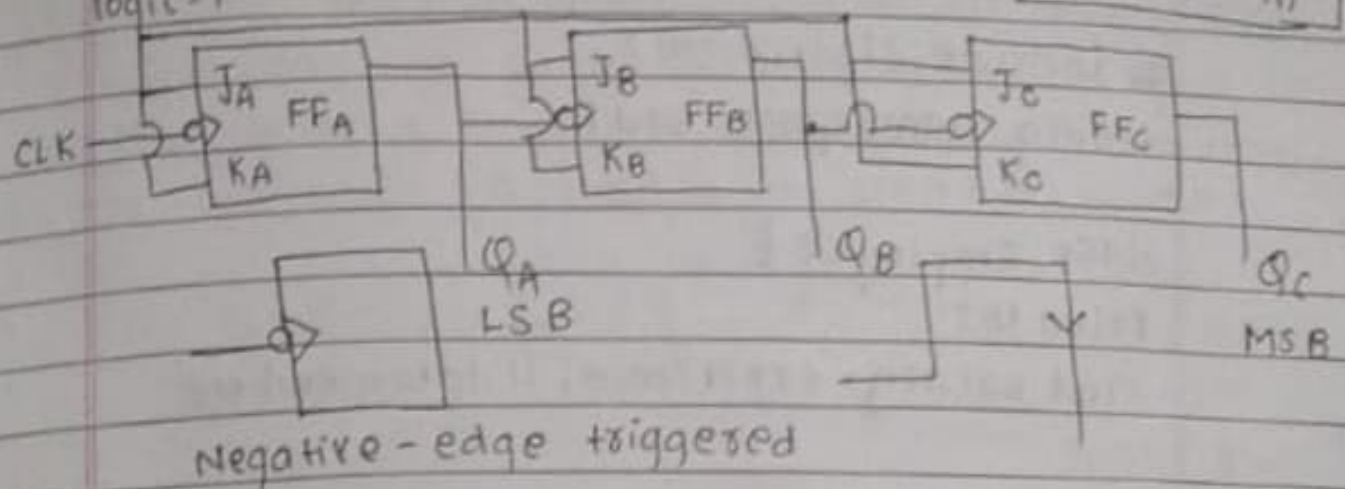 logic-1
JA
FFA
CLK
KA
JB
FFB
KB
JC
FFC
KC
QA
LSB
QB
QC
MSB
Negative-edge triggered